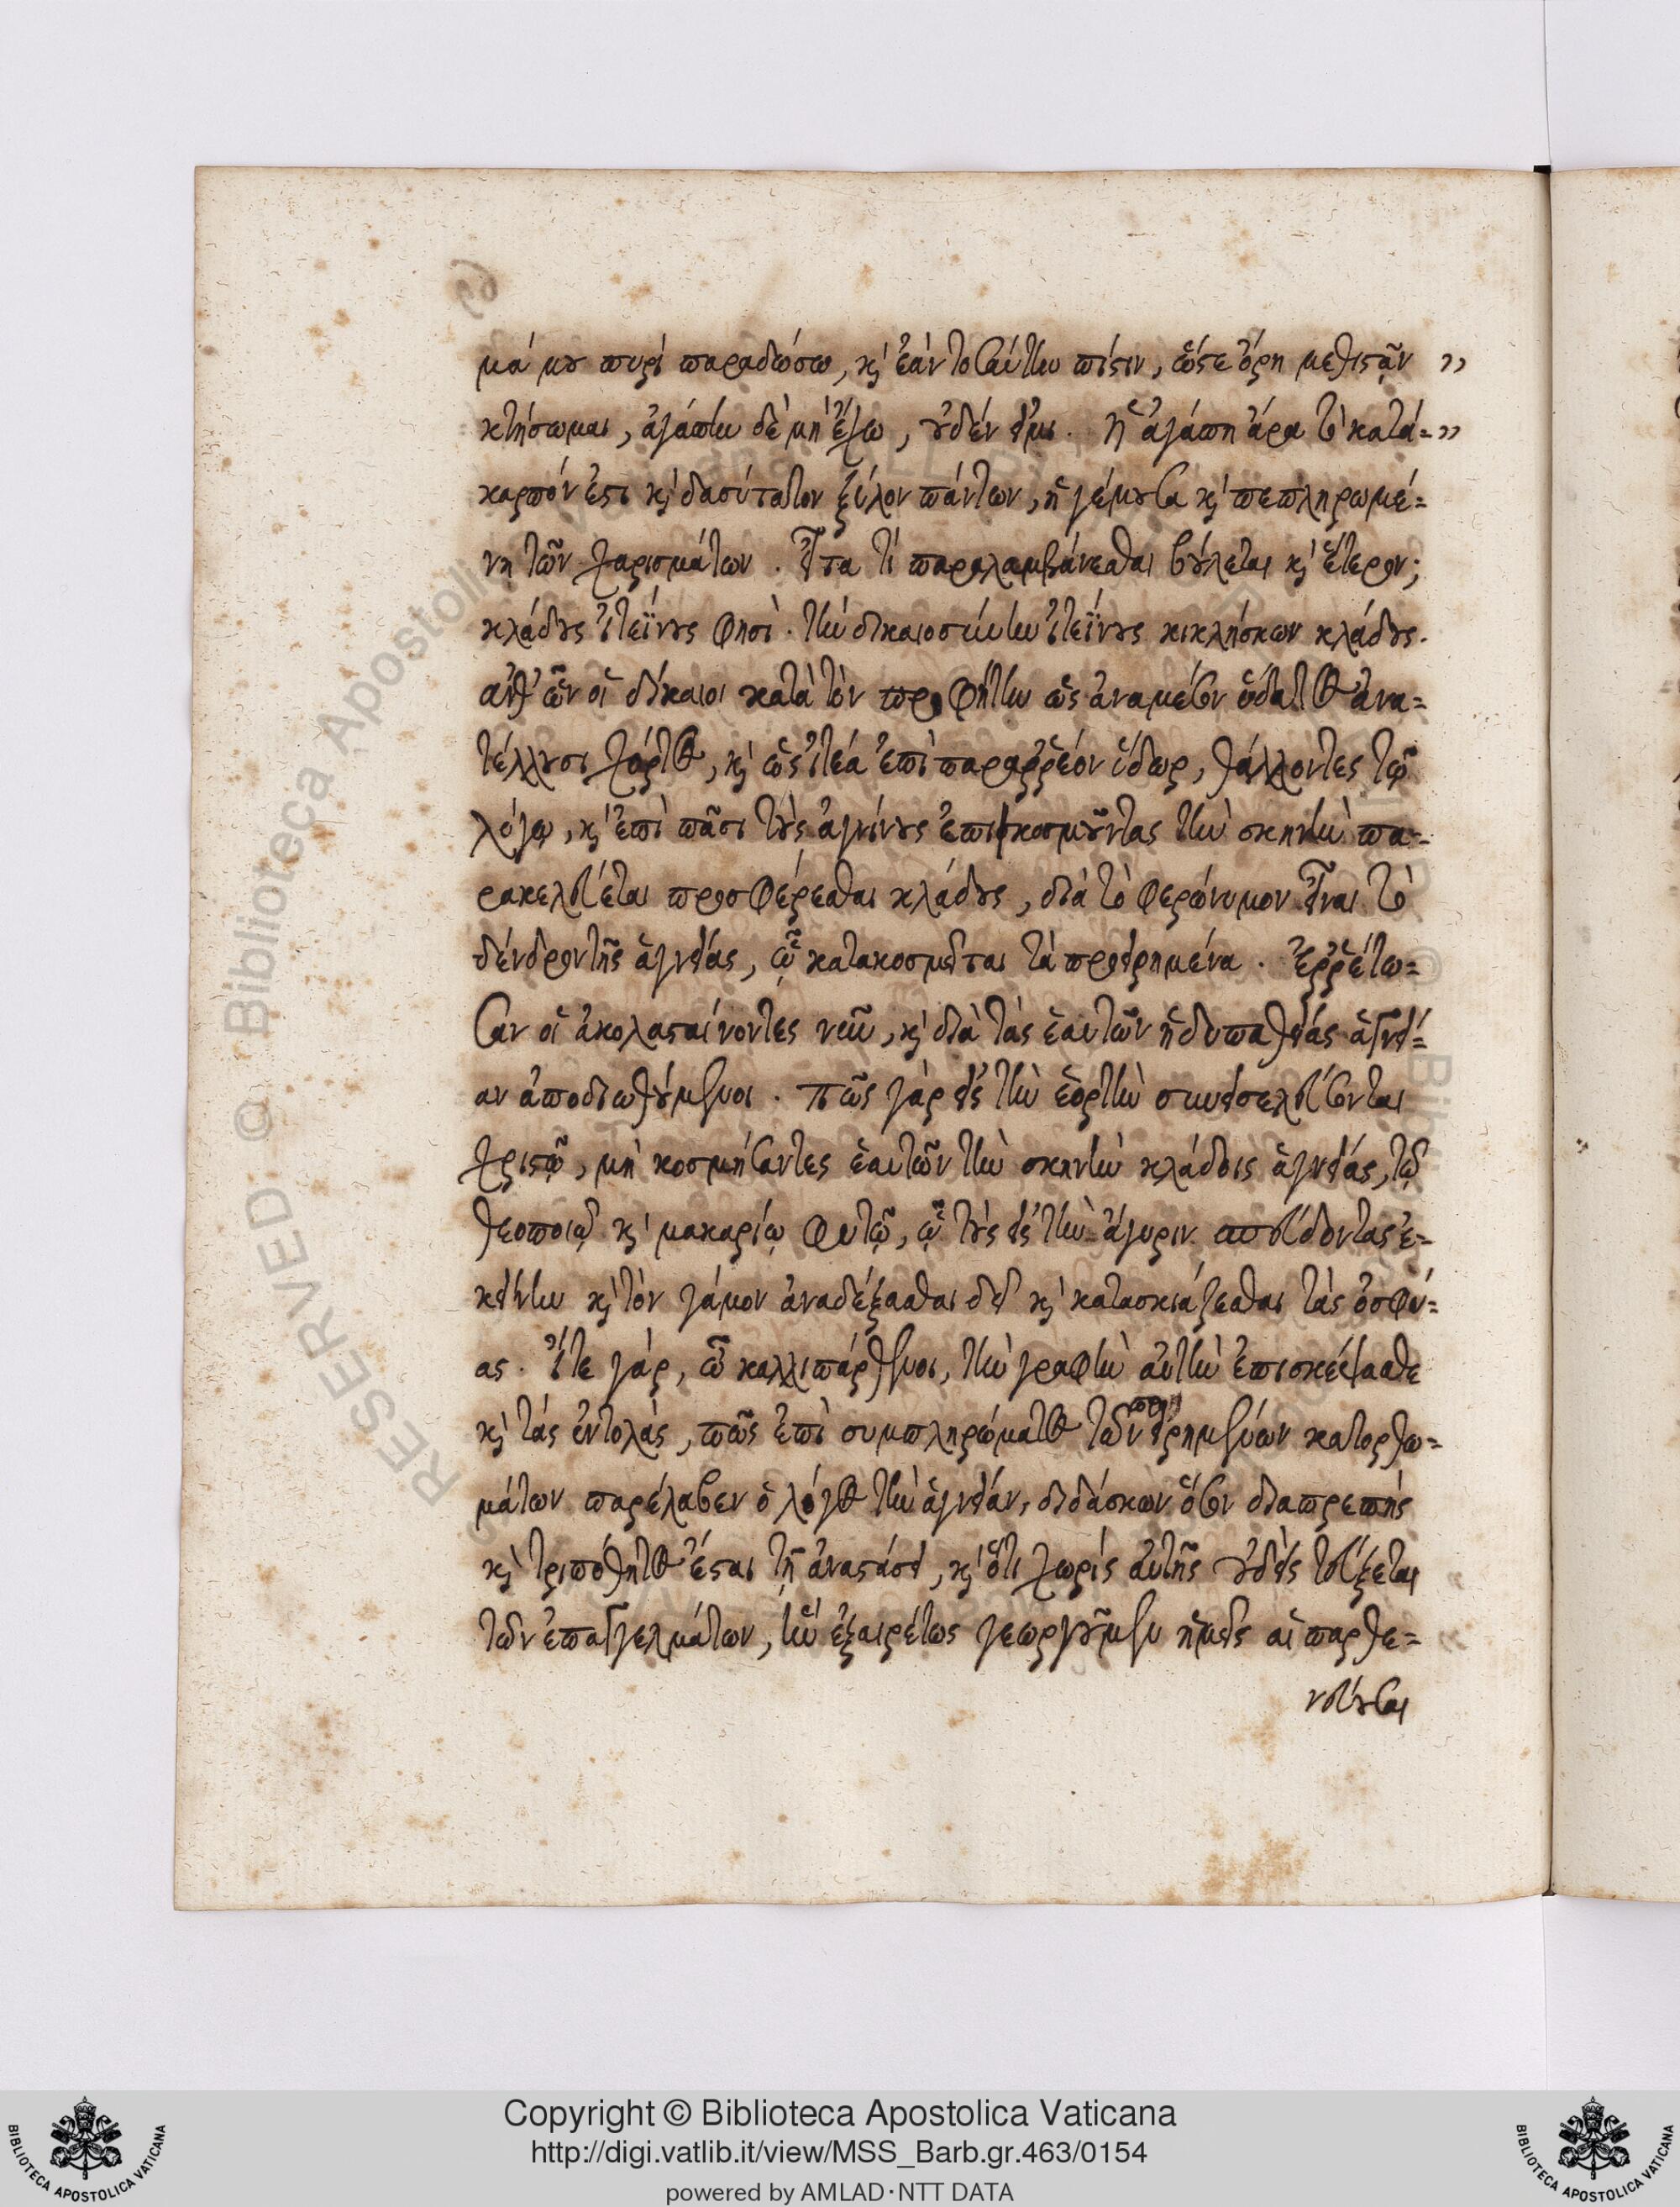 μά μου πυρὶ παραδώσω, καὶ ἐὰν τοσαύτην πίστιν, ὥστε ὄρη μεθιστᾷν "
κτήσωμαι, ἀγάπην δὲ μὴ ἔχω, οὐδέν εἰμι. ἡ ἀγάπη ἄρα τὸ κατά- "
καρπόν ἐστι καὶ δασύτατον ξύλον πάντων, ἡ γέμουσα καὶ πεπληρωμέ-
νη τῶν χαρισμάτων. Εἶτα τί παραλαμβάνεσθαι βούλεται καὶ ἕτερον;
κλάδους ἰτεΐνους φησί. τὴν δικαιοσύνην ἰτεΐνους κικλήσκων κλάδους.
ἀνθ' ὧν οἱ δίκαιοι κατὰ τὸν προφήτην ὡς ἀναμέσον ὕδατος ἀνα-
τέλλουσι χόρτος, καὶ ὡς ἰτέα ἐπὶ παραῤῥέον ὕδωρ, θάλλοντες τῷ
λόγῳ, καὶ ἐπὶ πᾶσι τοὺς ἁγνίνους ἐπικοσμοῦντας τὴν σκηνὴν πα-
ρακελεύεται προσφέρεσθαι κλάδους, διὰ τὸ φερώνυμον εἶναι τὸ
δένδρον τῆς ἁγνείας, ᾧ κατακοσμεῖται τὰ προειρημένα. Ἐῤῥέτω-
σαν οἱ ἀκολασταίνοντες νῦν, καὶ διὰ τὰς ἑαυτῶν ἡδυπαθείας ἁγνεί-
αν ἀποδιωθούμενοι. πῶς γὰρ εἰς τὴν ἑορτὴν συνεισελεύσονται
χριστῷ, μὴ κοσμήσαντες ἑαυτῶν τὴν σκηνὴν κλάδοις ἁγνείας, τῷ
θεοποιῷ καὶ μακαρίῳ φυτῷ, ᾧ τοὺς εἰς τὴν ἄγυριν σπεύδοντας ἐ-
κείνην καὶ τὸν γάμον ἀναδέξασθαι δεῖ καὶ κατασκιάζεσθαι τὰς ὀσφύ-
ας. Ἴτε γὰρ, ὦ καλλιπάρθενοι, τὴν γραφὴν αὐτὴν ἐπισκέψασθε
καὶ τὰς ἐντολὰς, πῶς ἐπὶ συμπληρώματος τῶν προειρημένων κατορθω-
μάτων παρέλαβεν ὁ λόγος τὴν ἁγνείαν, διδάσκων ὅσον διαπρεπής
καὶ τριπόθητος ἔσται τῇ ἀναστάσει, καὶ ὅτι χωρὶς αὐτῆς οὐδεὶς τεύξεται
τῶν ἐπαγγελμάτων, ἣν ἐξαιρέτως γεωργοῦμεν ἡμεῖς αἱ παρθε-
νεύουσαι
Copyright © Biblioteca Apostolica Vaticana
http://digi.vatlib.it/view/MSS_Barb.gr.463/0154
powered by AMLAD·NTT DATA
BIBLIOTECA APOSTOLICA VATICANA
BIBLIOTECA APOSTOLICA VATICANA